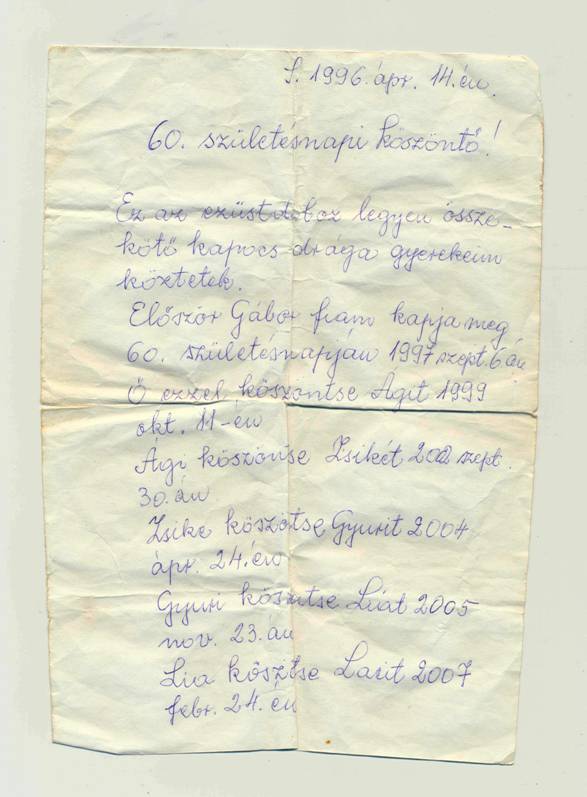 S. 1996. ápr. 14.én.
60. születésnapi köszöntő!
Ez az ezüstdoboz legyen össze-
kötő kapocs drága gyerekeim
köztetek.
Először Gábor fiam kapja meg
60. születésnapján 1997 szept. 6 án
Ő ezzel köszöntse Ágit 1999
okt. 11-én
Ági köszönse Zsikét 2002 szept.
30. án
Zsike köszötse Gyurit 2004
ápr. 24.én
Gyuri köszitse Liát 2005
nov. 23. án
Lia köszitse Lacit 2007
febr. 24. én